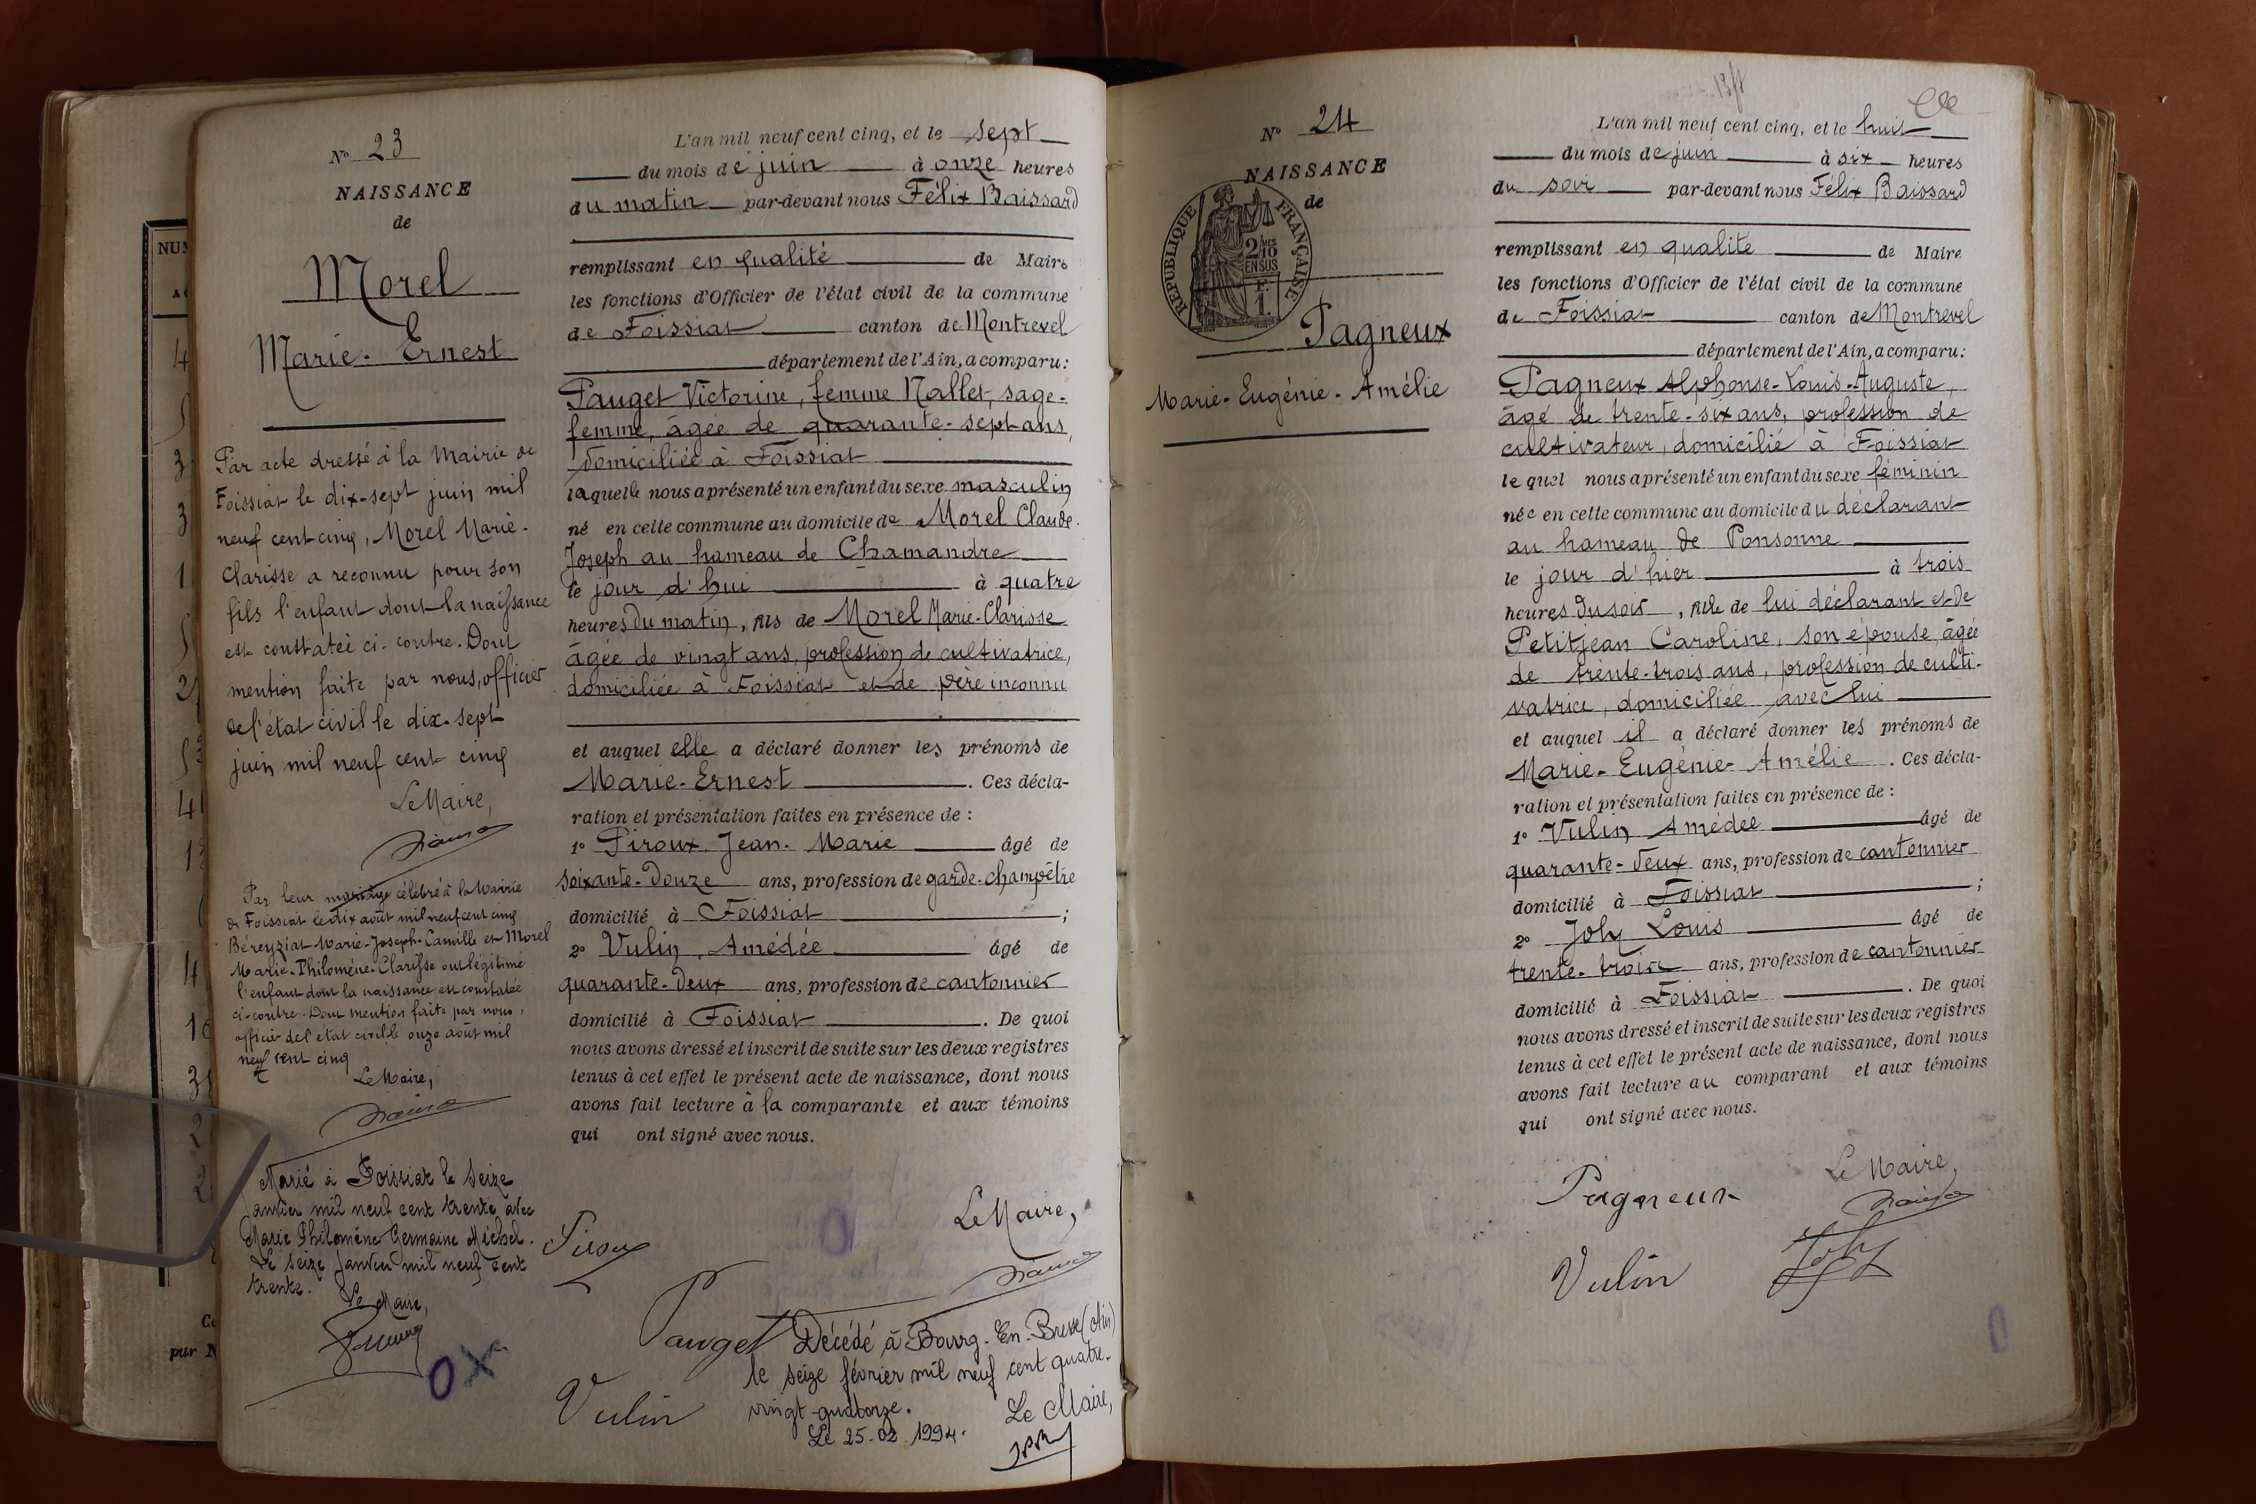 N° 23
NAISSANCE
de
Morel
Marie-Ernest
Par acte dressé à la Mairie de
Foissiat le dix-sept juin mil
neuf cent cinq, Morel Marie-
Clarisse a reconnu pour son
fils l'enfant dont la naissance
est constatée ci-contre. Dont
mention faite par nous, officier
de l'état civil le dix-sept
juin mil neuf cent cinq
Le Maire,
Par leur mariage célébré à la Mairie
de Foissiat le dix août mil neuf cent cinq
Béreyziat Marie-Joseph-Camille et Morel
Marie-Philomène-Clarisse ont légitimé
l'enfant dont la naissance est constatée
ci-contre. Dont mention faite par nous,
officier de l'état civil le onze août mil
neuf cent cinq
Le Maire,
Marié à Foissiat le seize
janvier mil neuf cent trente avec
Marie Philomène Germaine Michel.
Le seize Janvier mil neuf cent
trente.
Le Maire,
L'an mil neuf cent cinq, et le sept
du mois de juin à onze heures
du matin par-devant nous Félix Baissard
remplissant en qualité de Maire
les fonctions d'Officier de l'état civil de la commune
de Foissiat canton de Montrevel
département de l'Ain, a comparu:
Pauget Victorine, femme Nallet, sage-
femme, âgée de quarante-sept ans,
domiciliée à Foissiat
laquelle nous a présenté un enfant du sexe masculin
né en cette commune au domicile de Morel Claude-
Joseph au hameau de Chamandre
le jour d'hui à quatre
heures du matin, fils de Morel Marie-Clarisse
âgée de vingt ans, profession de cultivatrice,
domiciliée à Foissiat et de père inconnu
et auquel elle a déclaré donner les prénoms de
Marie-Ernest. Ces décla-
ration et présentation faites en présence de :
1° Piroux Jean-Marie âgé de
soixante-douze ans, profession de garde-champêtre
domicilié à Foissiat ;
2° Vulin, Amédée âgé de
quarante-deux ans, profession de cantonnier
domicilié à Foissiat. De quoi
nous avons dressé et inscrit de suite sur les deux registres
tenus à cet effet le présent acte de naissance, dont nous
avons fait lecture à la comparante et aux témoins
qui ont signé avec nous.
Le Maire,
Piroux
Pauget
Vulin
Décédé à Bourg-En-Bresse (Ain)
le seize février mil neuf cent quatre-
vingt-quatorze.
Le 25-02-1994.
Le Maire,
O X
N° 24
NAISSANCE
de
RÉPUBLIQUE FRANÇAISE
2/10
EN SUS
F.
1.
Pagneux
Marie-Eugénie-Amélie
L'an mil neuf cent cinq, et le huit
du mois de juin à six heures
du soir par-devant nous Félix Baissard
remplissant en qualité de Maire
les fonctions d'Officier de l'état civil de la commune
de Foissiat canton de Montrevel
département de l'Ain, a comparu:
Pagneux Alphonse-Louis-Auguste,
âgé de trente-six ans, profession de
cultivateur, domicilié à Foissiat
lequel nous a présenté un enfant du sexe féminin
née en cette commune au domicile du déclarant
au hameau de Ponsonne
le jour d'hier à trois
heures du soir, fille de lui déclarant et de
Petitjean Caroline, son épouse, âgée
de trente-trois ans, profession de culti-
vatrice, domiciliée avec lui
et auquel il a déclaré donner les prénoms de
Marie-Eugénie-Amélie. Ces décla-
ration et présentation faites en présence de :
1° Vulin Amédée âgé de
quarante-deux ans, profession de cantonnier
domicilié à Foissiat ;
2° Joly Louis âgé de
trente-trois ans, profession de cantonnier
domicilié à Foissiat. De quoi
nous avons dressé et inscrit de suite sur les deux registres
tenus à cet effet le présent acte de naissance, dont nous
avons fait lecture au comparant et aux témoins
qui ont signé avec nous.
Le Maire,
Pagneux
Vulin
Joly